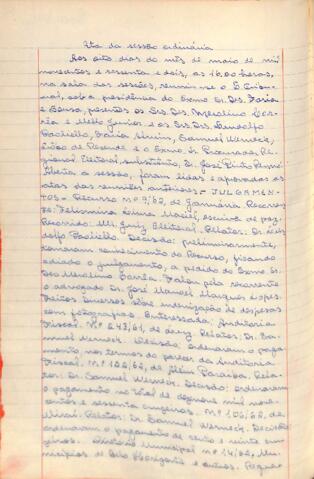 Ata da sessão ordinária
Aos oito dias do mês de maio de mil
novecentos e sessenta e dois, às 16,00 horas,
na sala das sessões, reuniu-se o E. Tribu-
nal, sob a presidência do Exmo Sr. Des. Faria
e Sousa, presentes os Srs. Des.
e Mello Junior e os Srs. Drs.
Paoliello, Samuel Werneck,
de Resende e o Exmo Sr. Procurador Re-
gional Eleitoral substituto, Dr. José Pinto
Aberta a sessão, foram lidas e aprovadas as
atas das reuniões anteriores. - JULGAMEN-
TOS - Recurso nº 9/62, de Januária. Recorren-
te: Felismina Maciel, escrivã de paz.
Recorrido: MM. Juiz Eleitoral. Relator: Dr.
Paoliello. Decisão: preliminarmente,
tomaram conhecimento do Recurso, ficando
adiado o julgamento, a pedido do Exmo Sr.
Des. Falou pela recorrente
o advogado Dr. José Manoel Marques Lopes.
Feitos diversos sôbre indenização de despesas
com fotografias. Interessada: Auditoria
Fiscal. Nº 643/61, de Relator: Dr. Sa-
muel Werneck. Decisão: ordenaram o paga-
mento, nos termos do parecer da Auditoria
Fiscal. Nº 102/62, de Além Paraíba. Rela-
tor: Dr. Samuel Werneck. Decisão: ordenaram
o pagamento no total de dezenove mil nove-
centos e sessenta cruzeiros. Nº 106/62, de
Miraí. Relator: Dr. Samuel Werneck. Decisão:
ordenaram o pagamento de cento e vinte cru-
zeiros. Divisão Municipal nº 14/62, Mu-
nicípios de Belo Horizonte e outros.